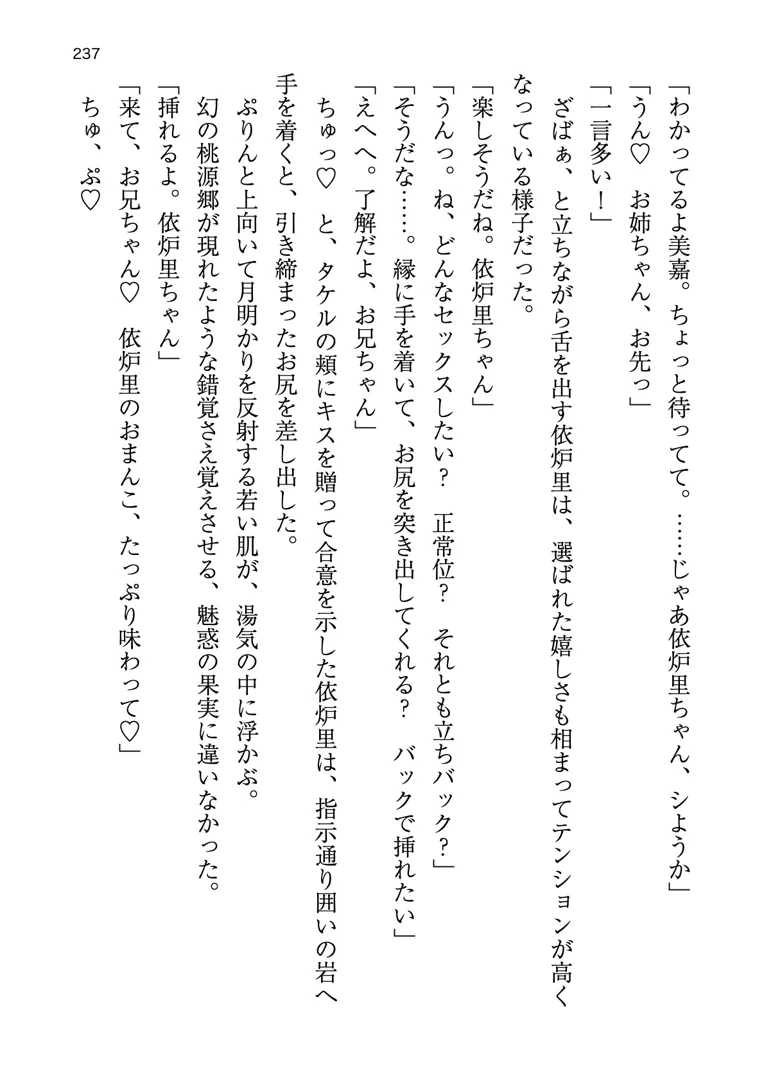 237
「わかってるよ美嘉。ちょっと待ってて。……じゃあ依炉里ちゃん、シようか」
「うん♡　お姉ちゃん、お先っ」
「一言多い！」
　ざばぁ、と立ちながら舌を出す依炉里は、選ばれた嬉しさも相まってテンションが高く
なっている様子だった。
「楽しそうだね。依炉里ちゃん」
「うんっ。ね、どんなセックスしたい？　正常位？　それとも立ちバック？」
「そうだな……。縁に手を着いて、お尻を突き出してくれる？　バックで挿れたい」
「えへへ。了解だよ、お兄ちゃん」
　ちゅっ♡　と、タケルの頬にキスを贈って合意を示した依炉里は、指示通り囲いの岩へ
手を着くと、引き締まったお尻を差し出した。
　ぷりんと上向いて月明かりを反射する若い肌が、湯気の中に浮かぶ。
　幻の桃源郷が現れたような錯覚さえ覚えさせる、魅惑の果実に違いなかった。
「挿れるよ。依炉里ちゃん」
「来て、お兄ちゃん♡　依炉里のおまんこ、たっぷり味わって♡」
　ちゅ、ぷ♡